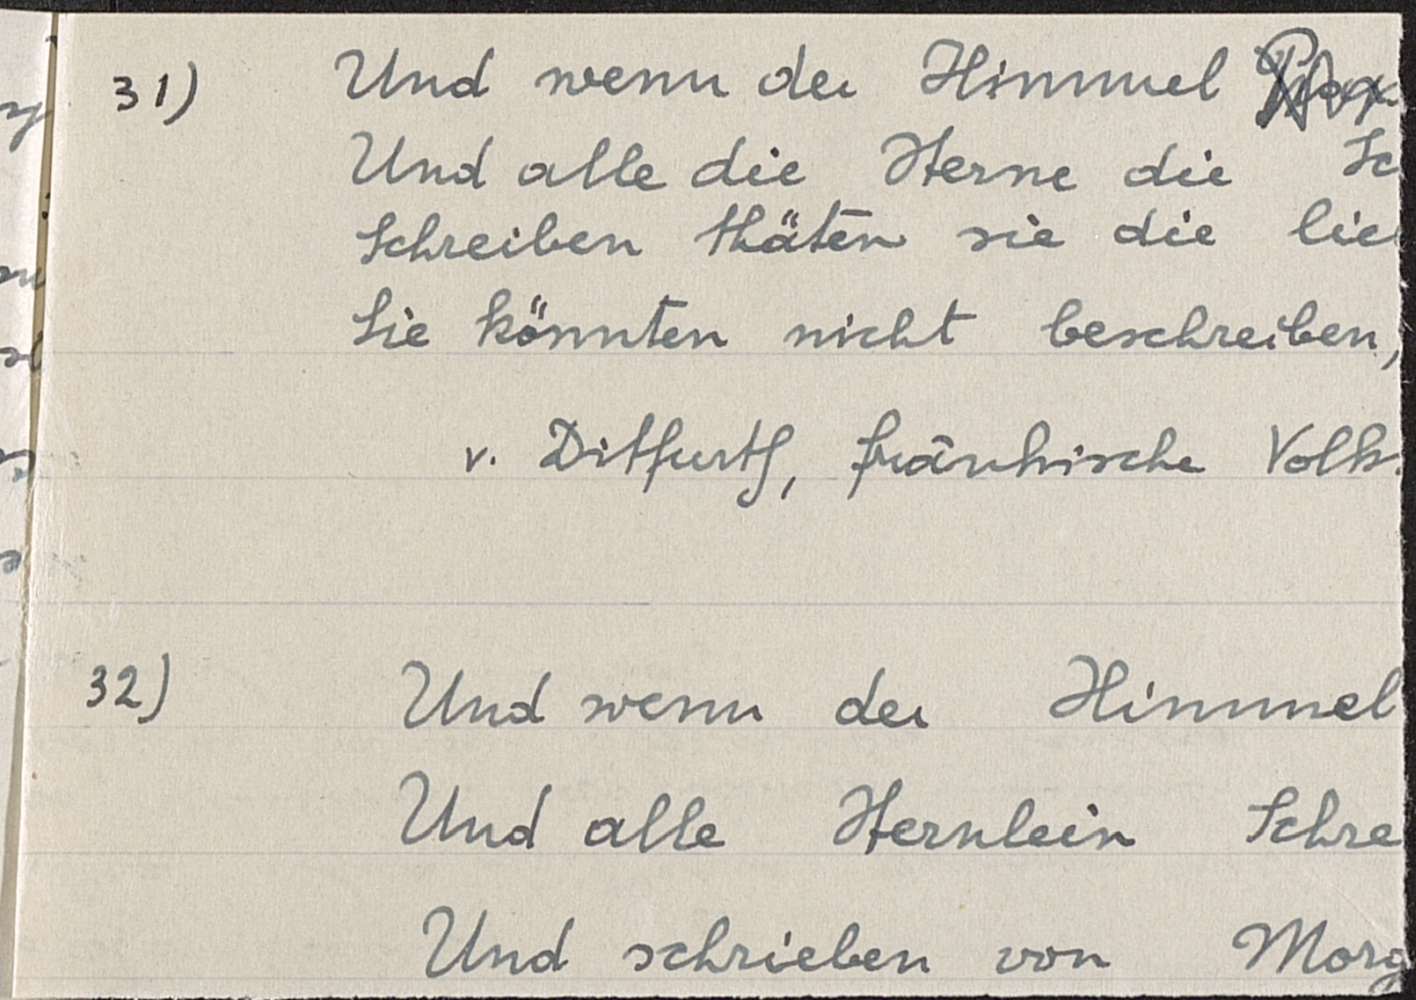 31) Und wenn der Himmel
Und alle die Sterne die Sc
Schreiben thäten sie die lie
Sie könnten nicht beschreiben,
v. Ditfurth, fränkische Volks
32) Und wenn der Himmel
Und alle Sternlein Schre
Und schrieben von Morg